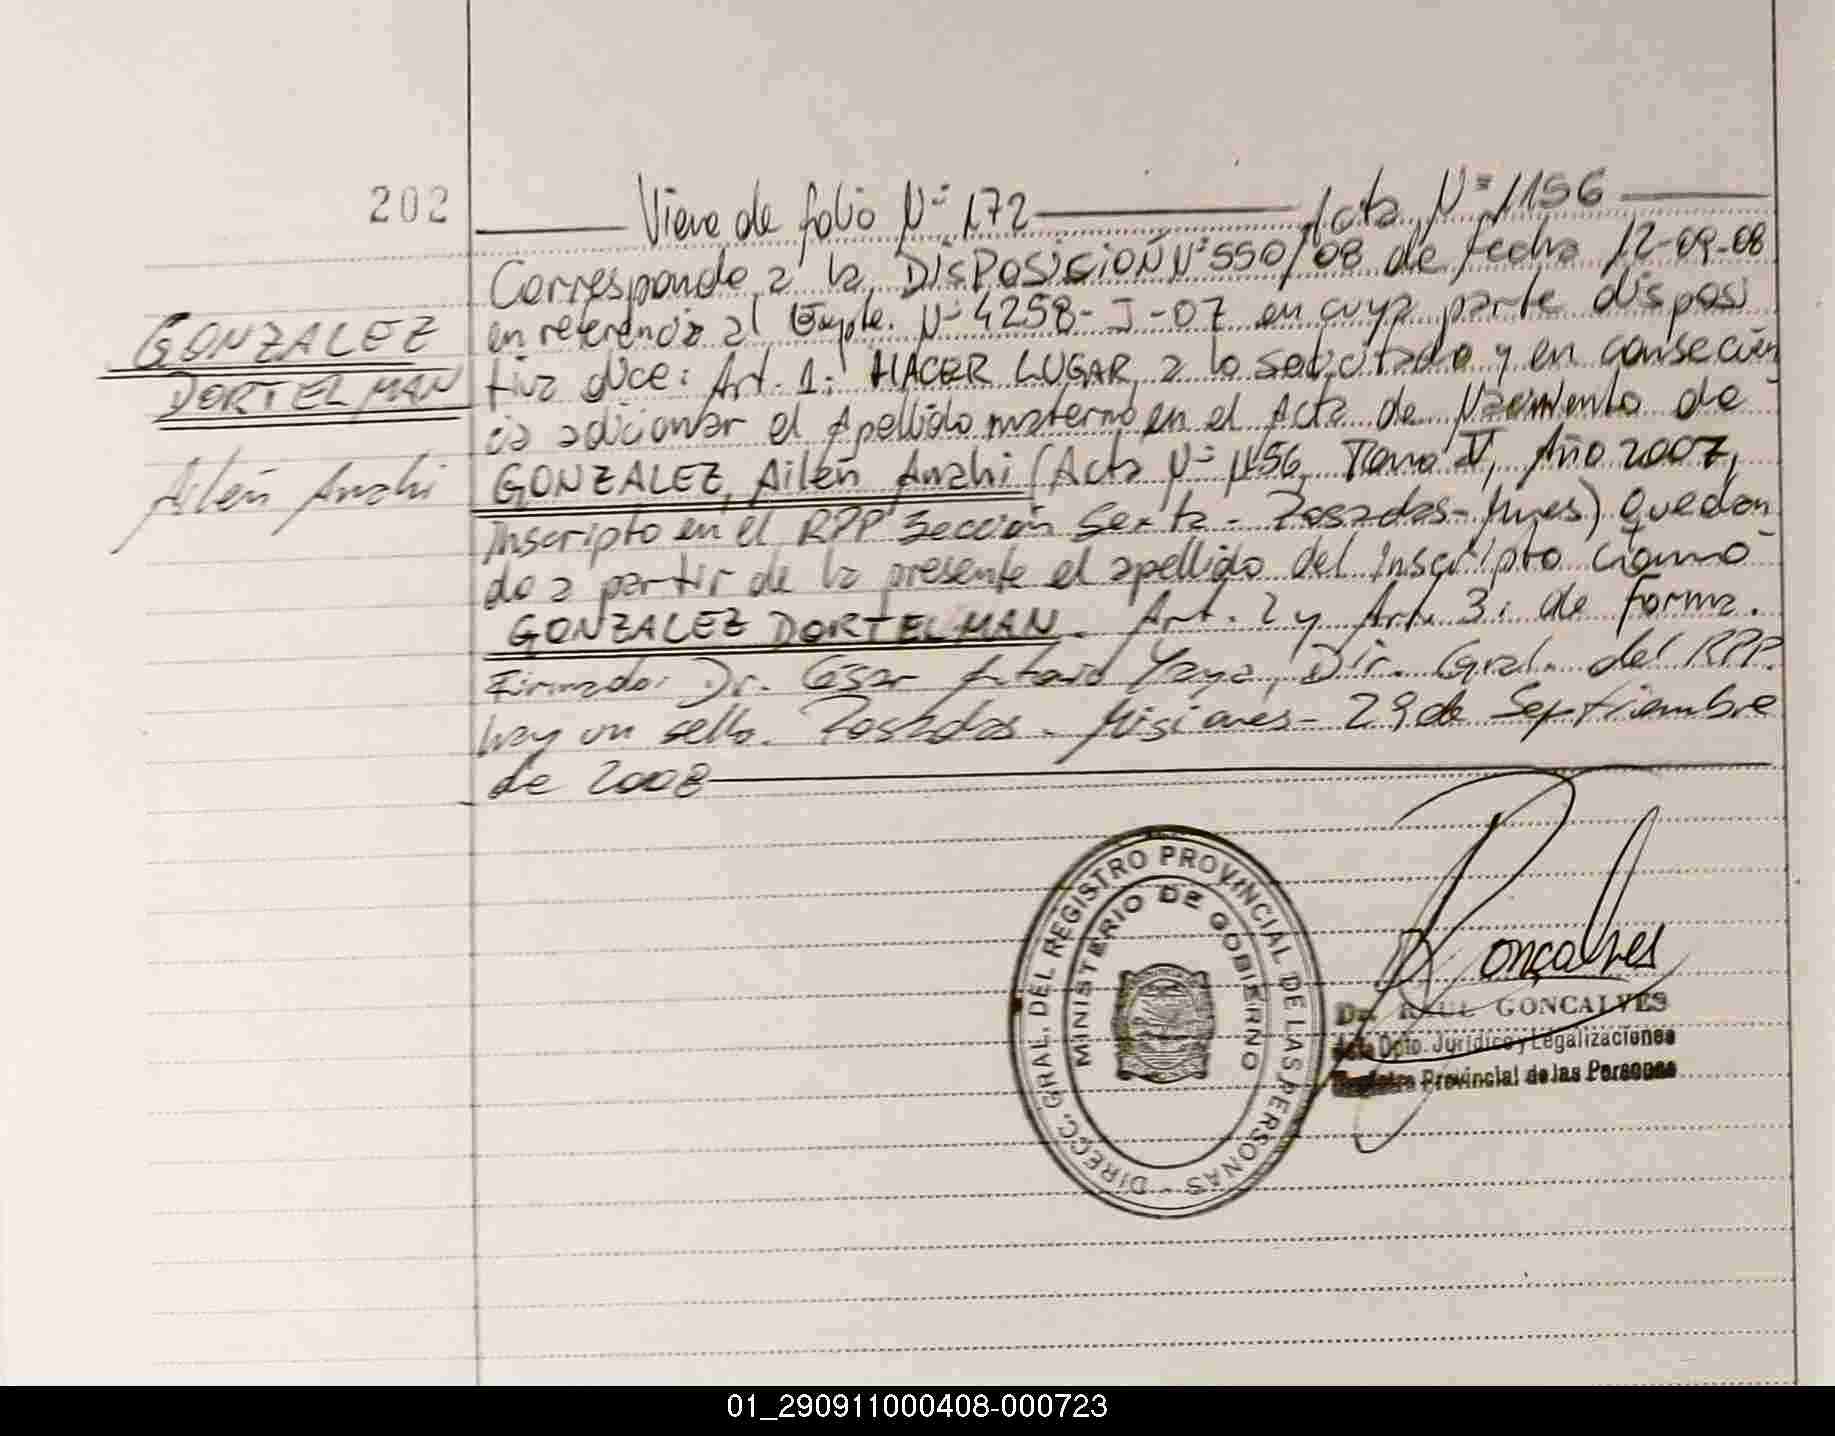 202
Viene de folio Nº 172 Acta Nº 1156
Corresponde a la DISPOSICIÓN Nº 550/08 de fecha 12-09-08
en referencia al Expte. Nº 4258-I-07 en cuya parte disposi
tiva dice: Art. 1: HACER LUGAR a lo solicitado y en consecuen
cia adicionar el Apellido materno en el Acta de Nacimiento de
GONZALEZ, Ailén Anahi (Acta Nº 1156, Tomo V, Año 2007,
Inscripto en el RPP Sección Sexta - Posadas - Mnes) quedan
do a partir de la presente el apellido del Inscripto como
GONZALEZ DORTELMAN. Art. 2 y Art. 3: de forma.
Firmado: Dr. César Antonio Yaya, Dir. Gral. del RPP.
hay un sello. Posadas - Misiones - 29 de Septiembre
de 2008
GONZALEZ
DORTELMAN
Ailén Anahi
DIRECC. GRAL. DEL REGISTRO PROVINCIAL DE LAS PERSONAS -
MINISTERIO DE GOBIERNO
Gonçalves
Dr. RAUL GONCALVES
Jefe Dpto. Jurídico y Legalizaciones
Registro Provincial de las Personas
01_290911000408-000723